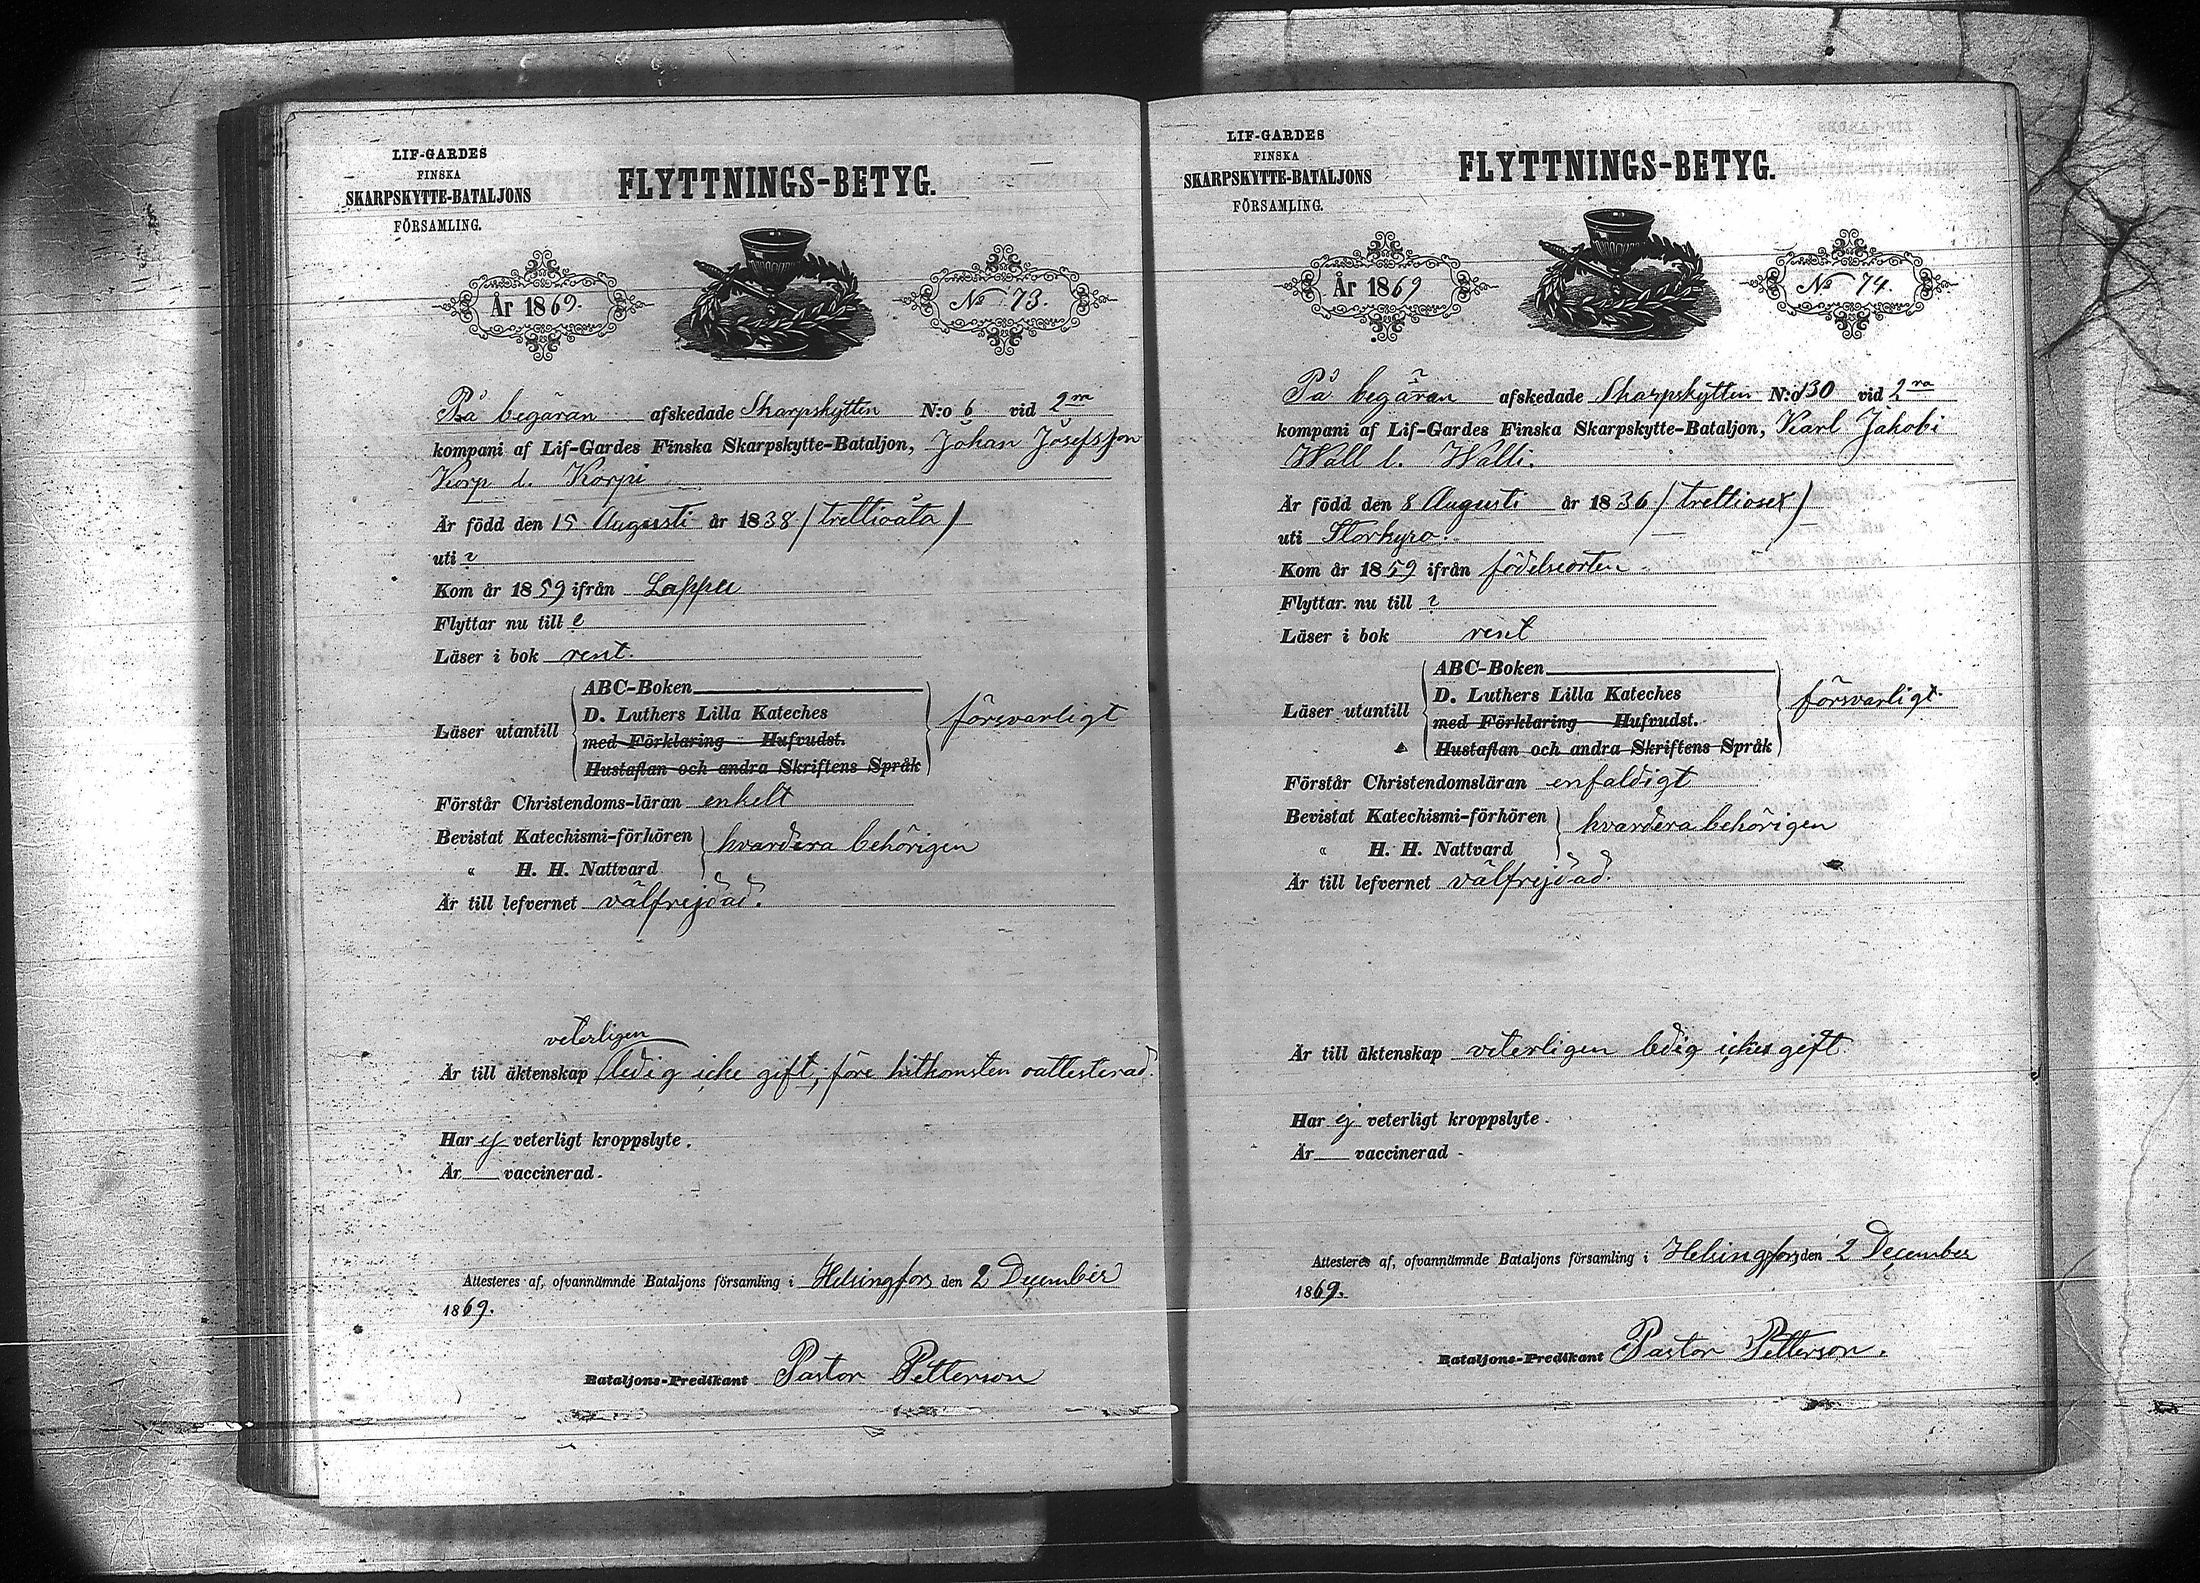 LIF-GARDES
FINSKA
SKARPSKYTTE-BATALJONS
FÖRSAMLING.
FLYTTNINGS-BETYG.
År 1869.
No 73.
På begäran afskedade Skarpskytten N:o 6 vid 2ra
kompani af Lif-Gardes Finska Skarpskytte-Bataljon, Johan Josefsson
Korp l. Korpi
Är född den 15 Augusti år 1838 (trettioåta)
uti ?
Kom år 1859 ifrån Lappee
Flyttar nu till ?
Läser i bok rent.
Läser utantill
ABC-Boken
D. Luthers Lilla Kateches
med Förklaring Hufvudst.
Hustaflan och andra Skriftens Språk
försvarligt
Förstår Christendoms-läran enkelt
Bevistat Katechismi-förhören
" H. H. Nattvard
hvardera behörigen
Är till lefvernet välfrejdad.
veterligen
Är till äktenskap ledig icke gift, före hitkomsten oattesterad.
Har ej veterligt kroppslyte.
Är vaccinerad.
Attesteres af, ofvannämnde Bataljons församling i Helsingfors den 2 December
1869.
Bataljons-Predikant Pastor Petterson
LIF-GARDES
FINSKA
SKARPSKYTTE-BATALJONS
FÖRSAMLING.
FLYTTNINGS-BETYG.
År 1869
No 74.
På begäran afskedade Skarpskytten N:o 130 vid 2ra
kompani af Lif-Gardes Finska Skarpskytte-Bataljon, Karl Jakobi
Wäll l. Wälli.
Är född den 8 Augusti år 1836 (trettiosex)
uti Storkyro.
Kom år 1859 ifrån födelseorten
Flyttar nu till ?
Läser i bok rent
Läser utantill
ABC-Boken
D. Luthers Lilla Kateches
med Förklaring Hufvudst.
Hustaflan och andra Skriftens Språk
försvarligt.
Förstår Christendomsläran enfaldigt
Bevistat Katechismi-förhören
" H. H. Nattvard
hvardera behörigen
Är till lefvernet välfrejdad.
Är till äktenskap veterligen ledig icke gift.
Har ej veterligt kroppslyte.
Är vaccinerad
Attesteres af, ofvannämnde Bataljons församling i Helsingfors den 2 December
1869.
Bataljons-Predikant Pastor Petterson.